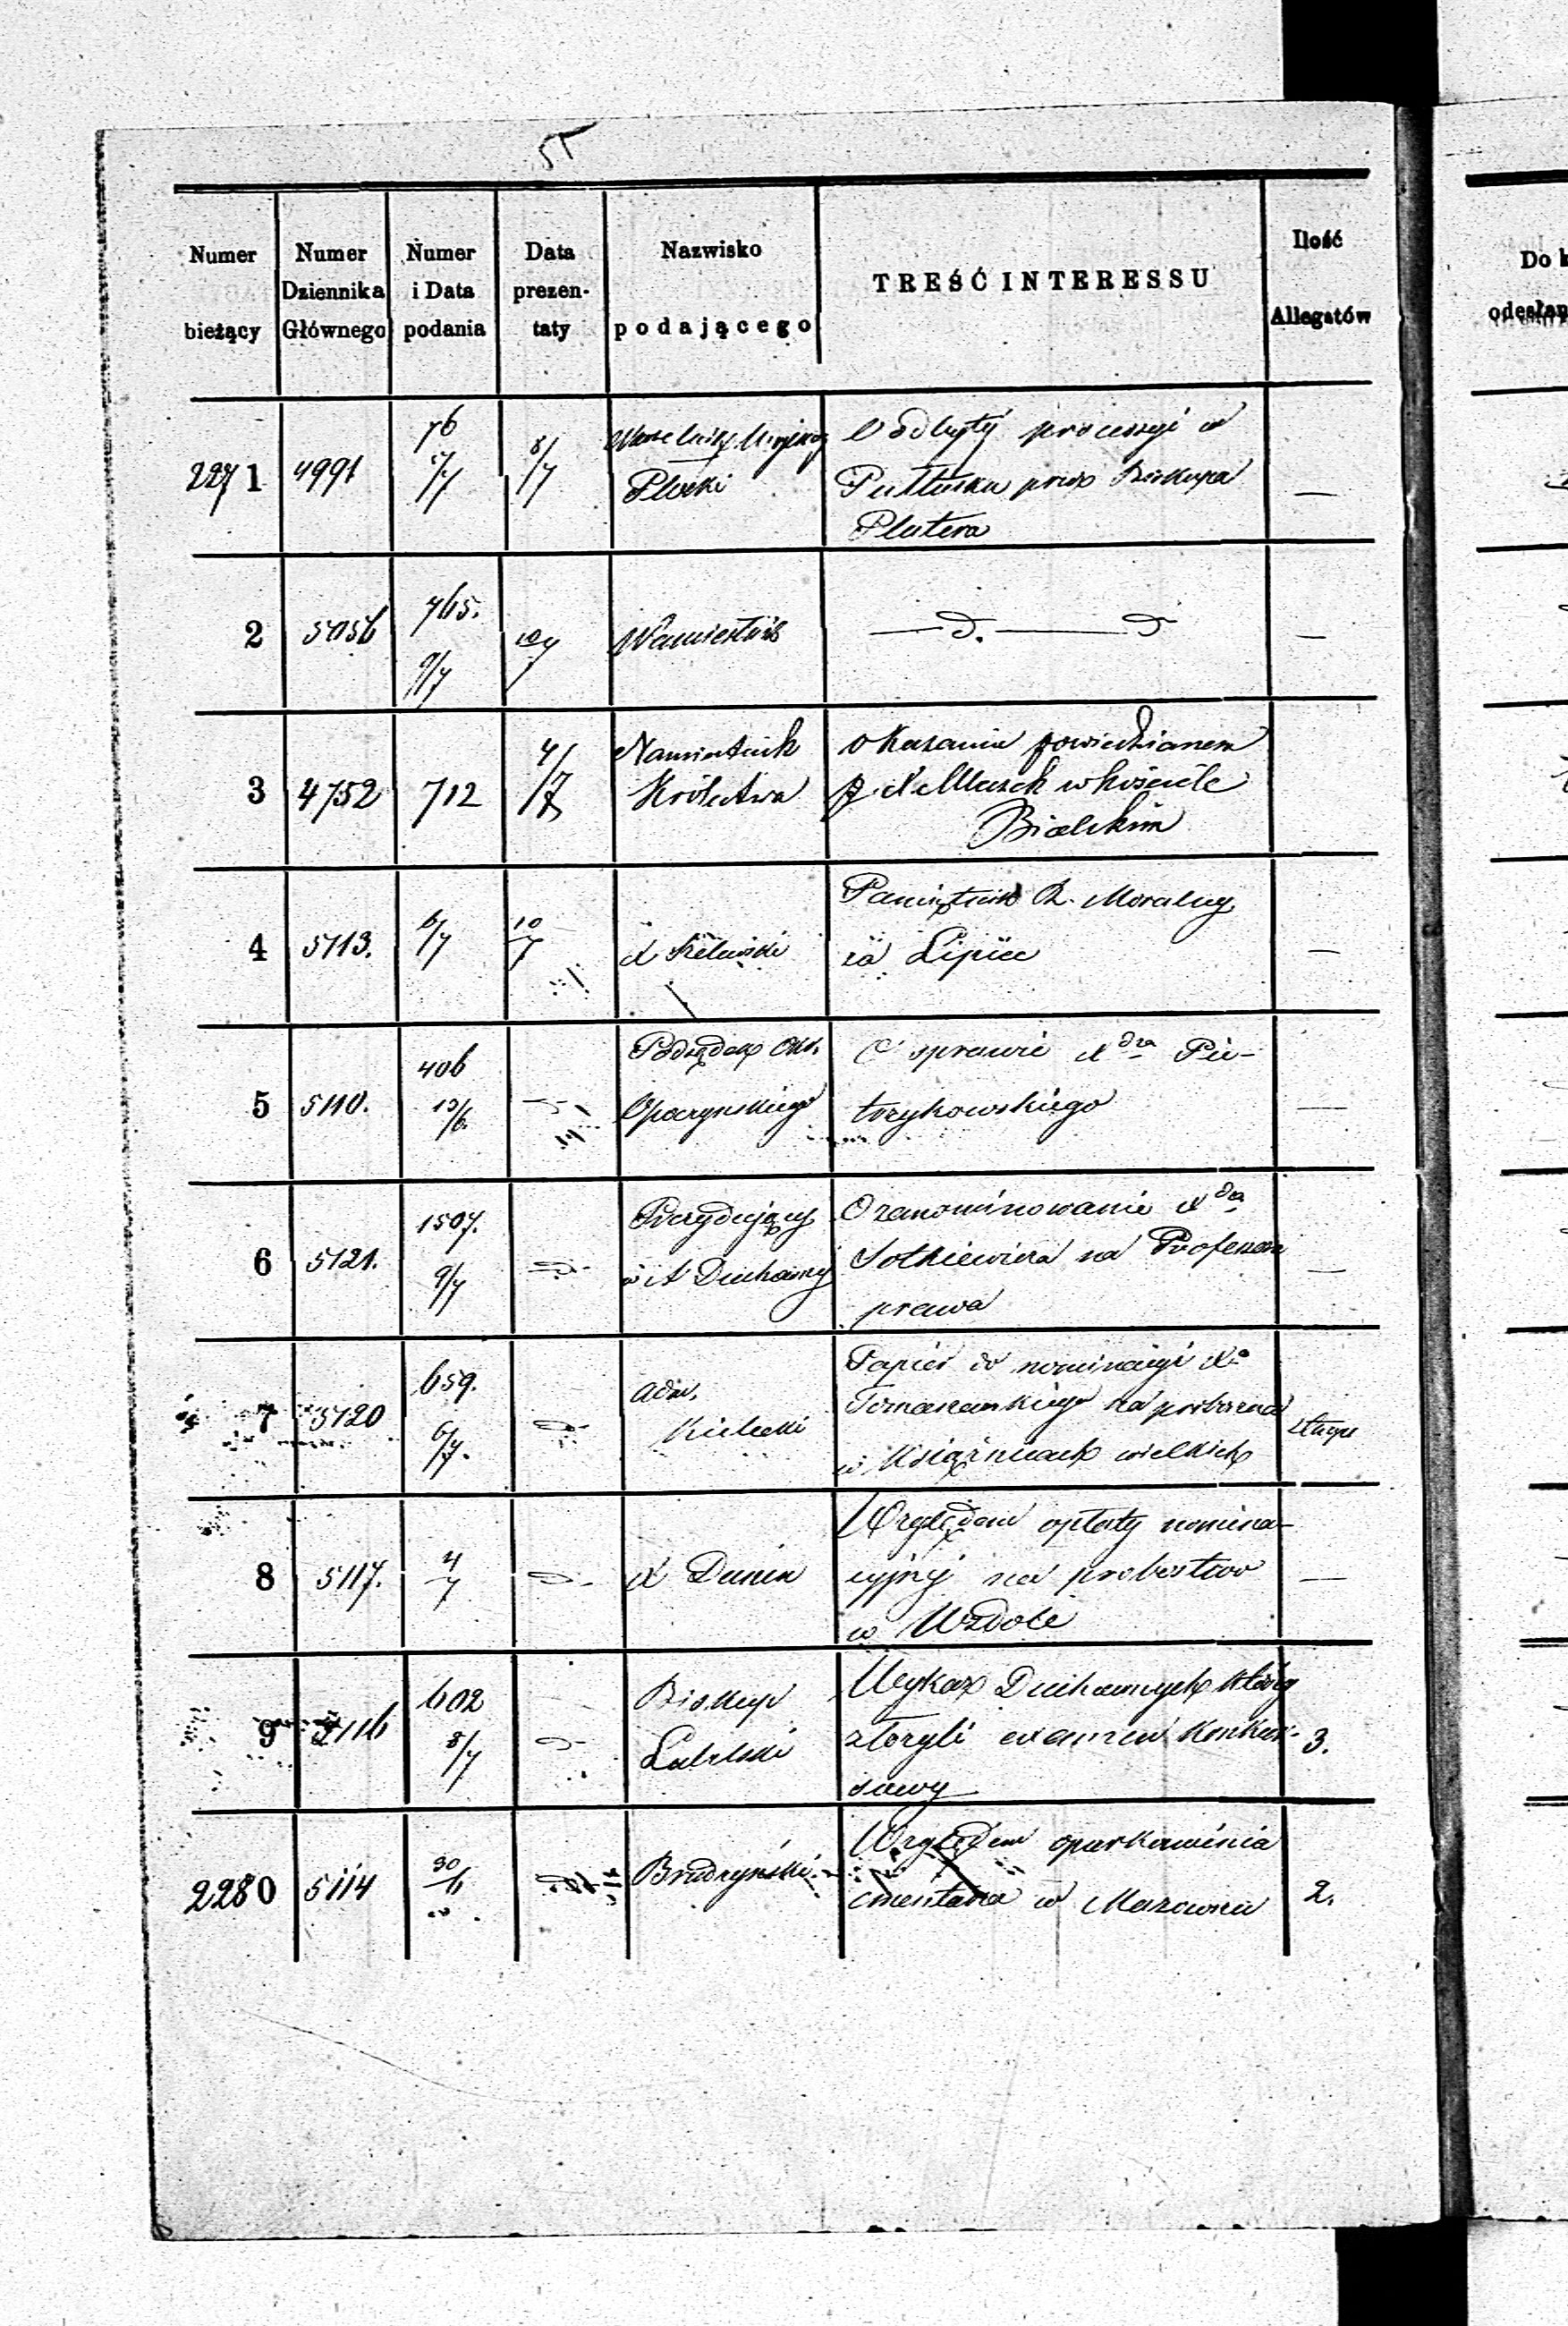 55
Numer bieżący
Numer Dziennika Głównego
Numer i Data podania
Data prezen-taty
Nazwisko podającego
TREŚĆ INTERESSU
Ilość Allegatów
Do
odesłan
227 1 4991 76 8/7
Płocki
O odbytej processyi w
Pułtusku przez Biskupa
Platera
—
2 5056 765. 9/7 10/7
Namiestnik
— d. — d
—
3 4752 712 4/7
Namiestnik
Królestwa
o kazaniu powiedzianem
p. X Muzsk w kościele
Bielskim
4 5113. 6/7 10/7
X
Pamiętnik R. Moralny
za Lipiec
—
5 5110. 406 13/6. — d —
Podsędek Okr.
Opoczyńskiego
O sprawie X dza Pie-
trzykowskiego
—
6 5121. 1507. 9/7 — d —
Prezydujący
w A Duchownej
O zanominowanie X dza
Sotkiewicza na Profesora
prawa
—
7 5120 659. 6/7. — d —
Adm.
Kielecki
Papier do nominacyi Xa
Tomaszewskiego na proboszcza
w Książnicach wielkich
8 5117. 4/7 — d —
X Dunin
Względem opłaty nomina-
cyjnej na probostwo
w Wzdole
—
9 5116 602 8/7 — d —
Biskup
Lubelski
Wykaz Duchownych którzy
złożyli examen konkur-
sowy
3.
2280 5114 30/6 — d —
Brudzyński
Względem oparkanienia
cmentarza w Mazowsze
2.